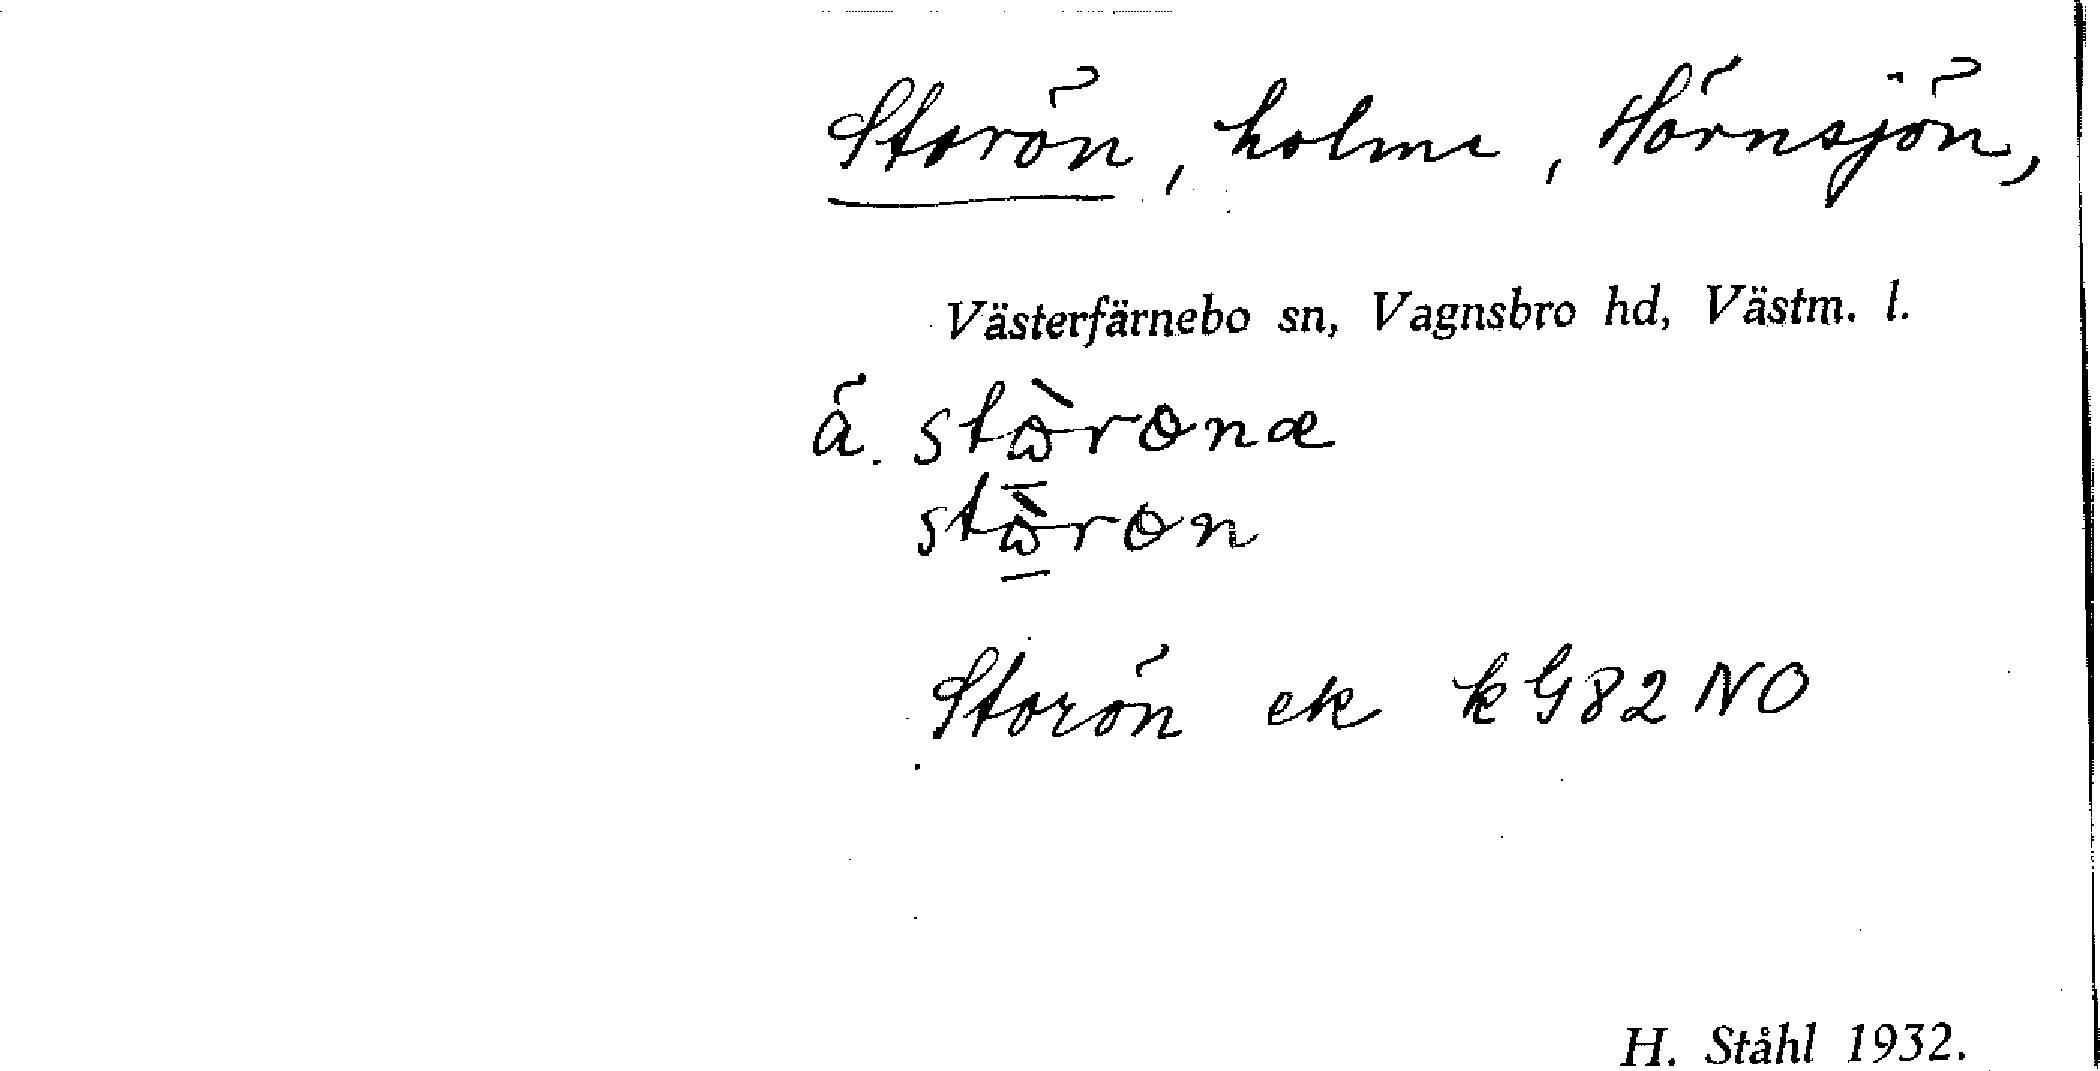 Storön, holme, Hörnsjön,
Västerfärnebo sn, Vagnsbro hd, Västm. l.
å. stɷ̀rɵnæ
stɷ̀rɵn
Storön ek k G82 NO
H. Ståhl 1932.